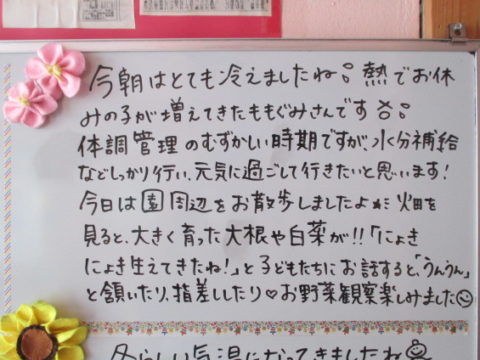 今朝はとても冷えましたね。熱でお休
みの子が増えてきたももぐみさんです。
体調管理のむずかしい時期ですが、水分補給
などしっかり行い、元気に過ごして行きたいと思います！
今日は園周辺をお散歩しましたよ 畑を
見ると、大きく育った大根や白菜が!!「にょき
にょき生えてきたね！」と子どもたちにお話すると、「うんうん」
と頷いたり、指差ししたり♡お野菜観察楽しみました☺
らしい気温になってきましたね